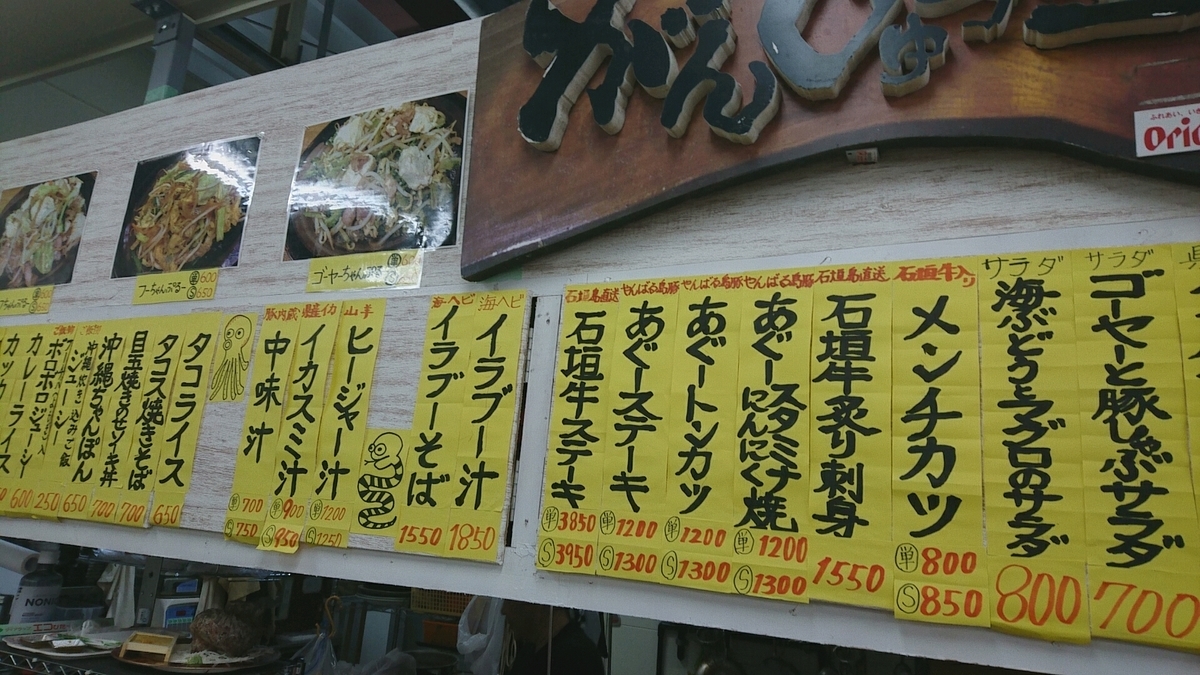 がんじゅう
ふれあい、い
Oric
フーちゃんぷるー
単600
S650
ゴーヤーちゃんぷるー
サラダ
ゴーヤーと豚しゃぶサラダ
700
サラダ
海ぶどうとマグロのサラダ
800
石垣牛入り
メンチカツ
単800
S850
石垣島直送
石垣牛炙り刺身
1550
やんばる島豚
あぐースタミナにんにく焼
単1200
S1300
やんばる島豚
あぐートンカツ
単1200
S1300
やんばる島豚
あぐーステーキ
単1200
S1300
石垣島直送
石垣牛ステーキ
単3850
S3950
海ヘビ
イラブー汁
1850
海ヘビ
イラブーそば
1550
山羊
ヒージャー汁
単1200
S1250
イカスミ汁
単900
S950
豚内蔵
中味汁
単700
S750
タコライス
650
タコス焼きそば
700
目玉焼きのせソーキ丼
700
沖縄ちゃんぽん
650
沖縄炊き込みご飯
ジューシー
250
ボロボロジューシー
600
カレーライス
カツカレーライス